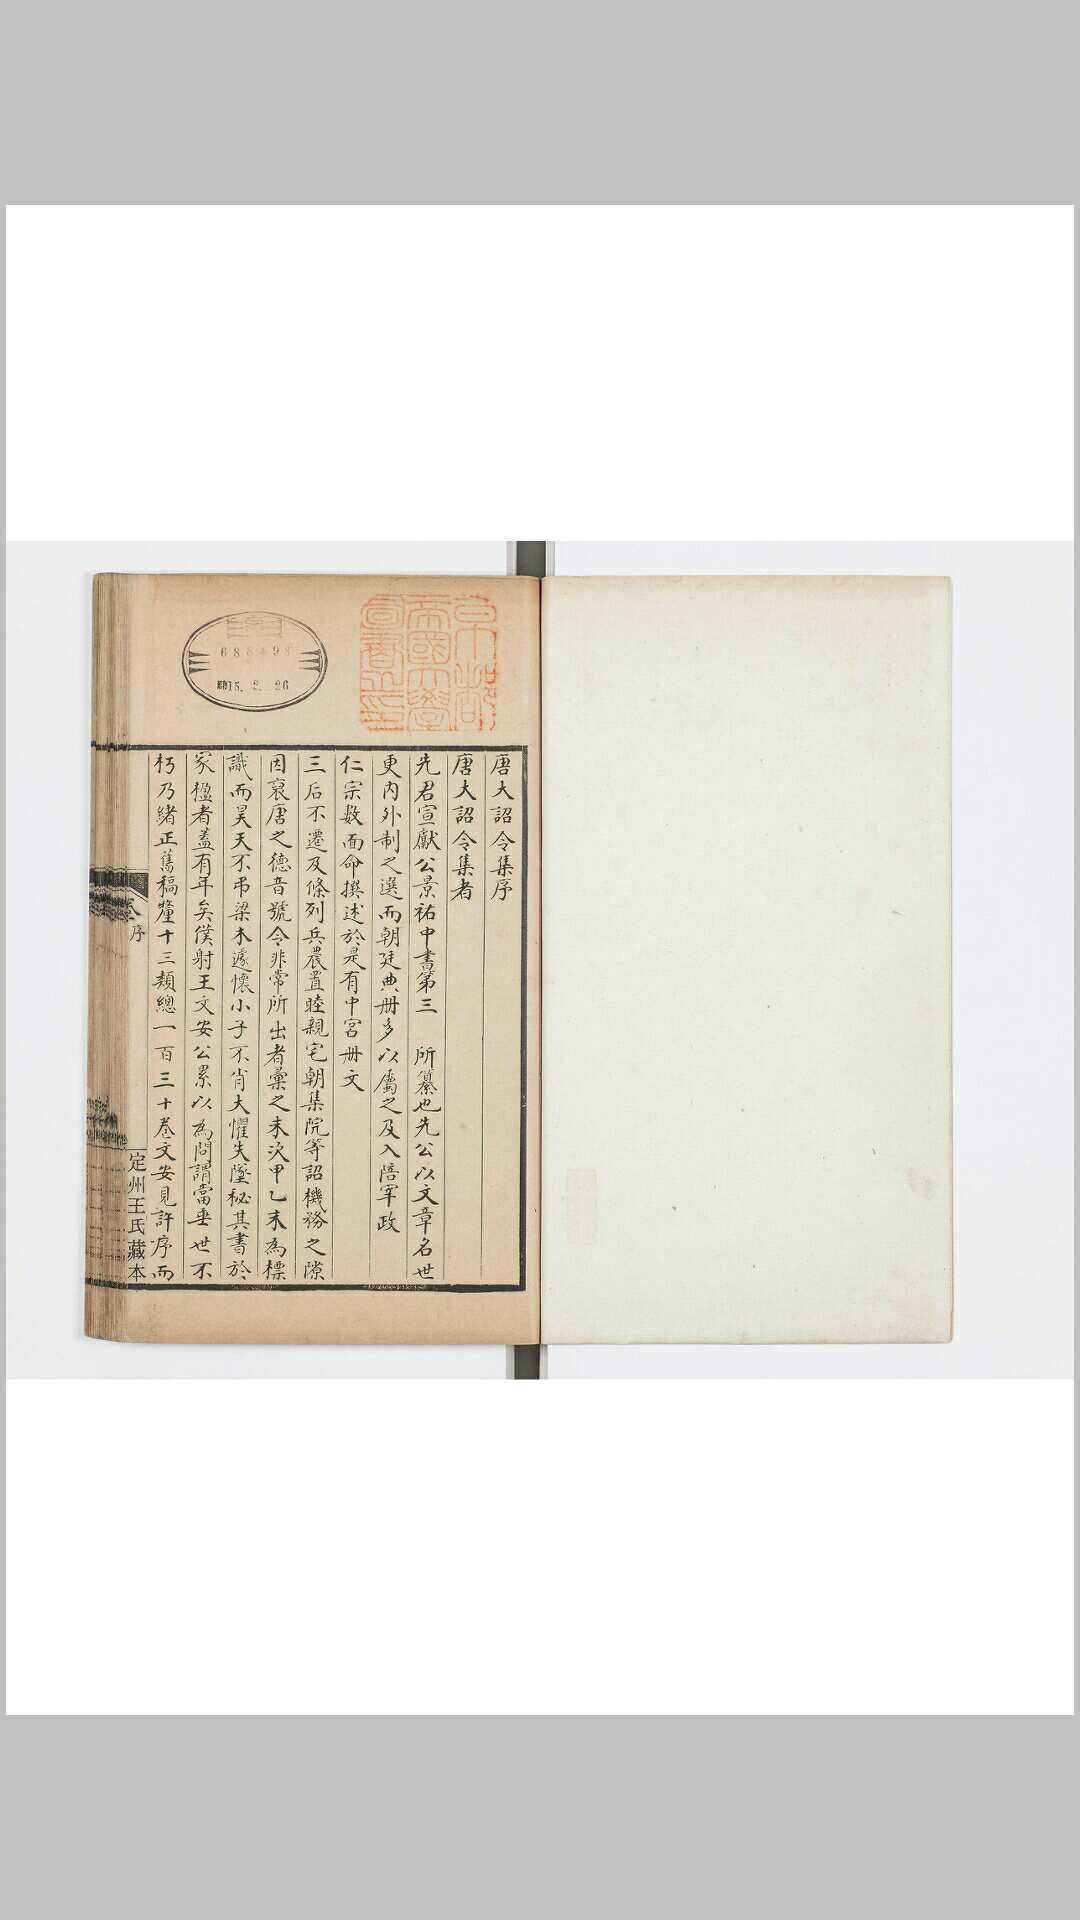 京都
帝國大學
圖書之印
688498
昭和15.2.26
唐大詔令集序
唐大詔令集者
先君宣獻公景祐中書第三　所纂也先公以文章名世
更內外制之選而朝廷典册多以屬之及入陪宰政
仁宗數面命撰述於是有中宮册文
三后不遷及條列兵農置睦親宅朝集院等詔機務之隙
因裒唐之德音號令非常所出者彙之未次甲乙未為標
識而昊天不弔梁木遽懷小子不肖大懼失墜秘其書於
家楹者蓋有年矣僕射王文安公累以為問謂當垂世不
朽乃緒正舊稿釐十三類總一百三十卷文安見許序而
序
定州王氏藏本